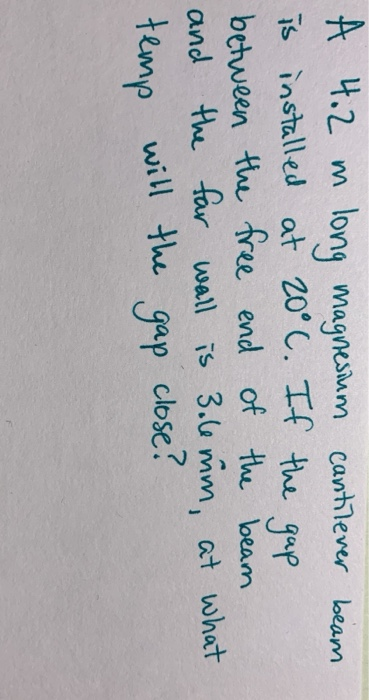 A 4.2 m long magnesium cantilever beam
is installed at 20°C. If the gap
between the free end of the beam
and the far wall is 3.6 mm, at what
temp will the gap close?